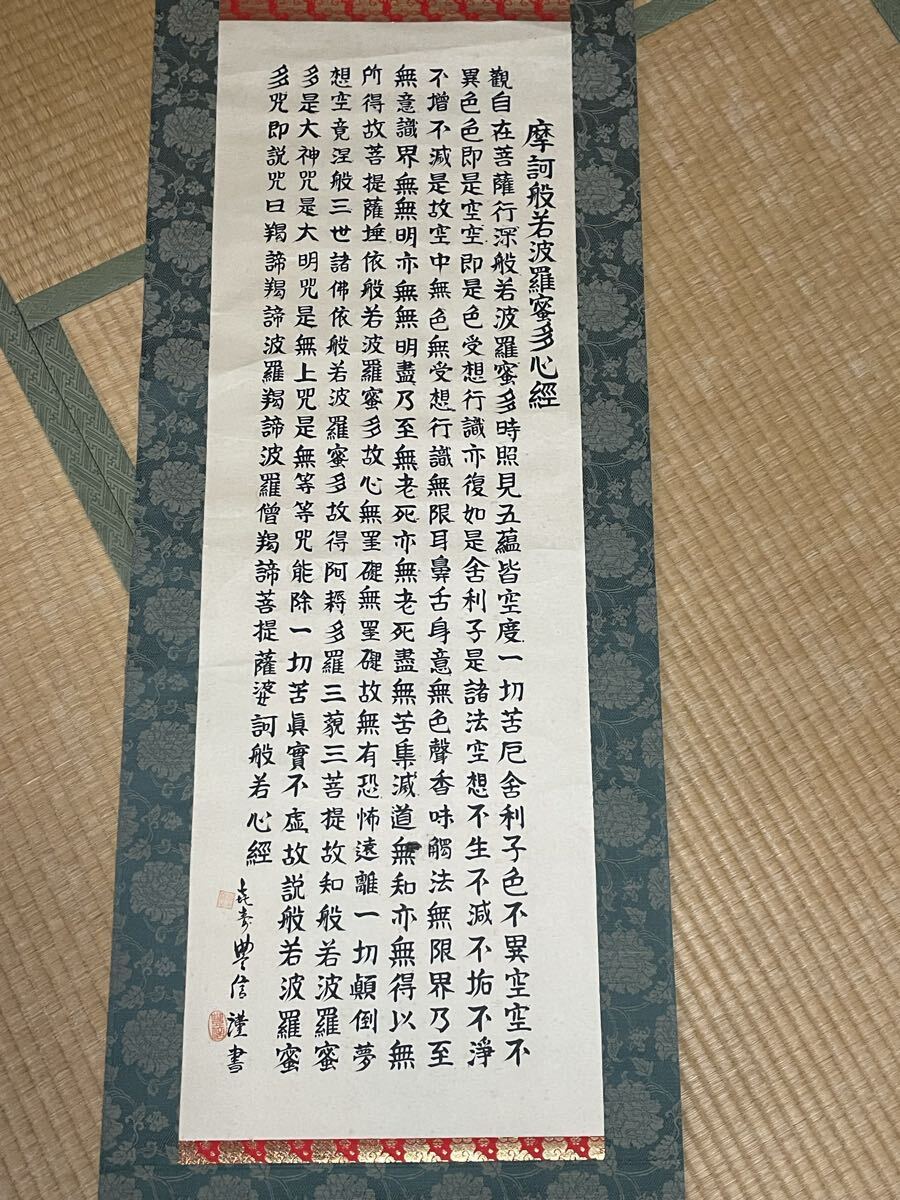 摩訶般若波羅蜜多心經
觀自在菩薩行深般若波羅蜜多時照見五蘊皆空度一切苦厄舍利子色不異空空不
異色色即是空空即是色受想行識亦復如是舍利子是諸法空想不生不減不垢不淨
不增不減是故空中無色無受想行識無限耳鼻舌身意無色聲香味觸法無限界乃至
無意識界無無明亦無無明盡乃至無老死亦無老死盡無苦集減道無知亦無得以無
所得故菩提薩埵依般若波羅蜜多故心無罣礙無罣礙故無有恐怖遠離一切顛倒夢
想空竟涅般三世諸佛依般若波羅蜜多故得阿耨多羅三藐三菩提故知般若波羅蜜
多是大神咒是大明咒是無上咒是無等等咒能除一切苦眞實不虛故説般若波羅蜜
多咒即説咒曰羯諦羯諦波羅羯諦波羅僧羯諦菩提薩婆訶般若心經
㐂寿豐信謹書